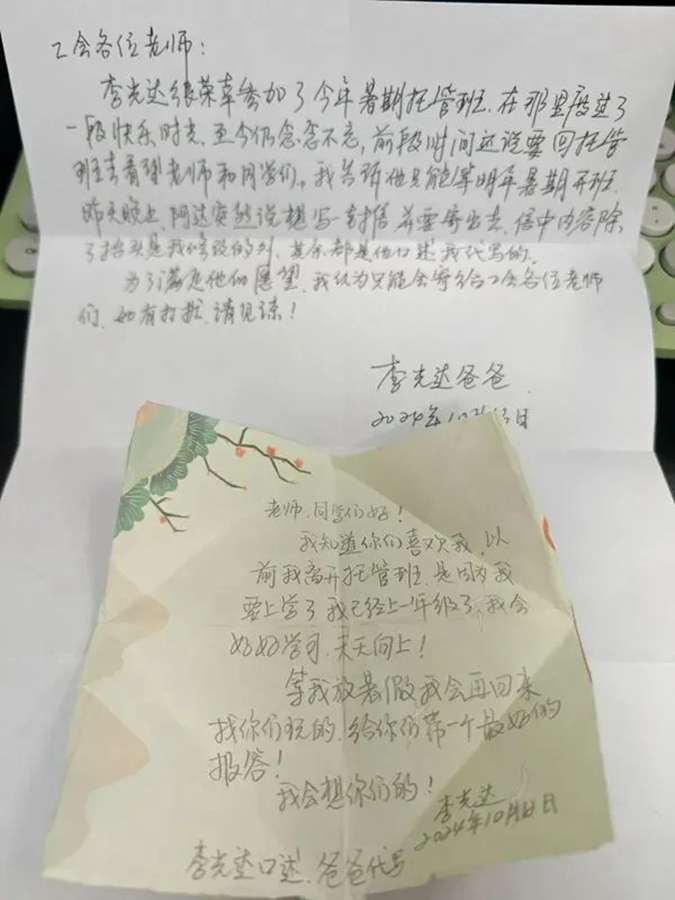 工会各位老师：
李克达很荣幸参加了今年暑期托管班，在那里度过了
一段快乐时光，至今仍念念不忘，前段时间还说要回托管
班去看望老师和同学们。我告诉他只能等明年暑期开班，
昨天晚上，阿达突然说想写一封信并要寄出去，信中内容除
了抬头是我修改的外，其余都是他口述我代写的。
为了满足他的愿望，我认为只能会寄给工会各位老师
们，如有打扰，请见谅！
李克达爸爸
2024年10月 日
老师、同学们好！
我知道你们喜欢我，以
前我离开托管班，是因为我
要上学了，我已经上一年级了，我会
好好学习，天天向上！
等我放暑假我会再回来
找你们玩的，给你们带一个最好的
报答！
我会想你们的！
李克达
2024年10月 日
李克达口述，爸爸代写